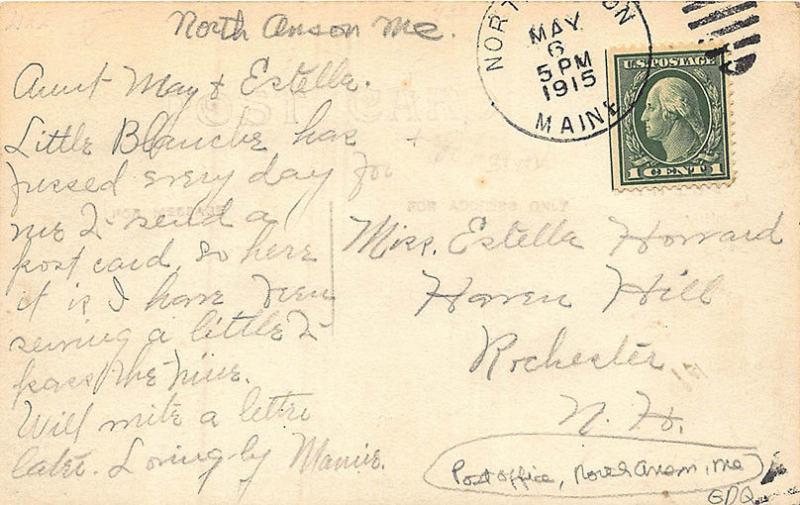 North Anson Me.
NORTH ANSON
MAY
6
5 PM
1915
MAINE
U.S. POSTAGE
1 CENT 1
Aunt May & Estella.
Little Blanche has
fussed every day for
me 2- send a
post card, so here
it is I have been
sewing a little 2-
pass the time.
Will write a letter
later. Lovingly Mamie.
FOR ADDRESS ONLY
Miss. Estella Howard
Haven Hill
Rochester
N. H.
Post office, North Anson, Me